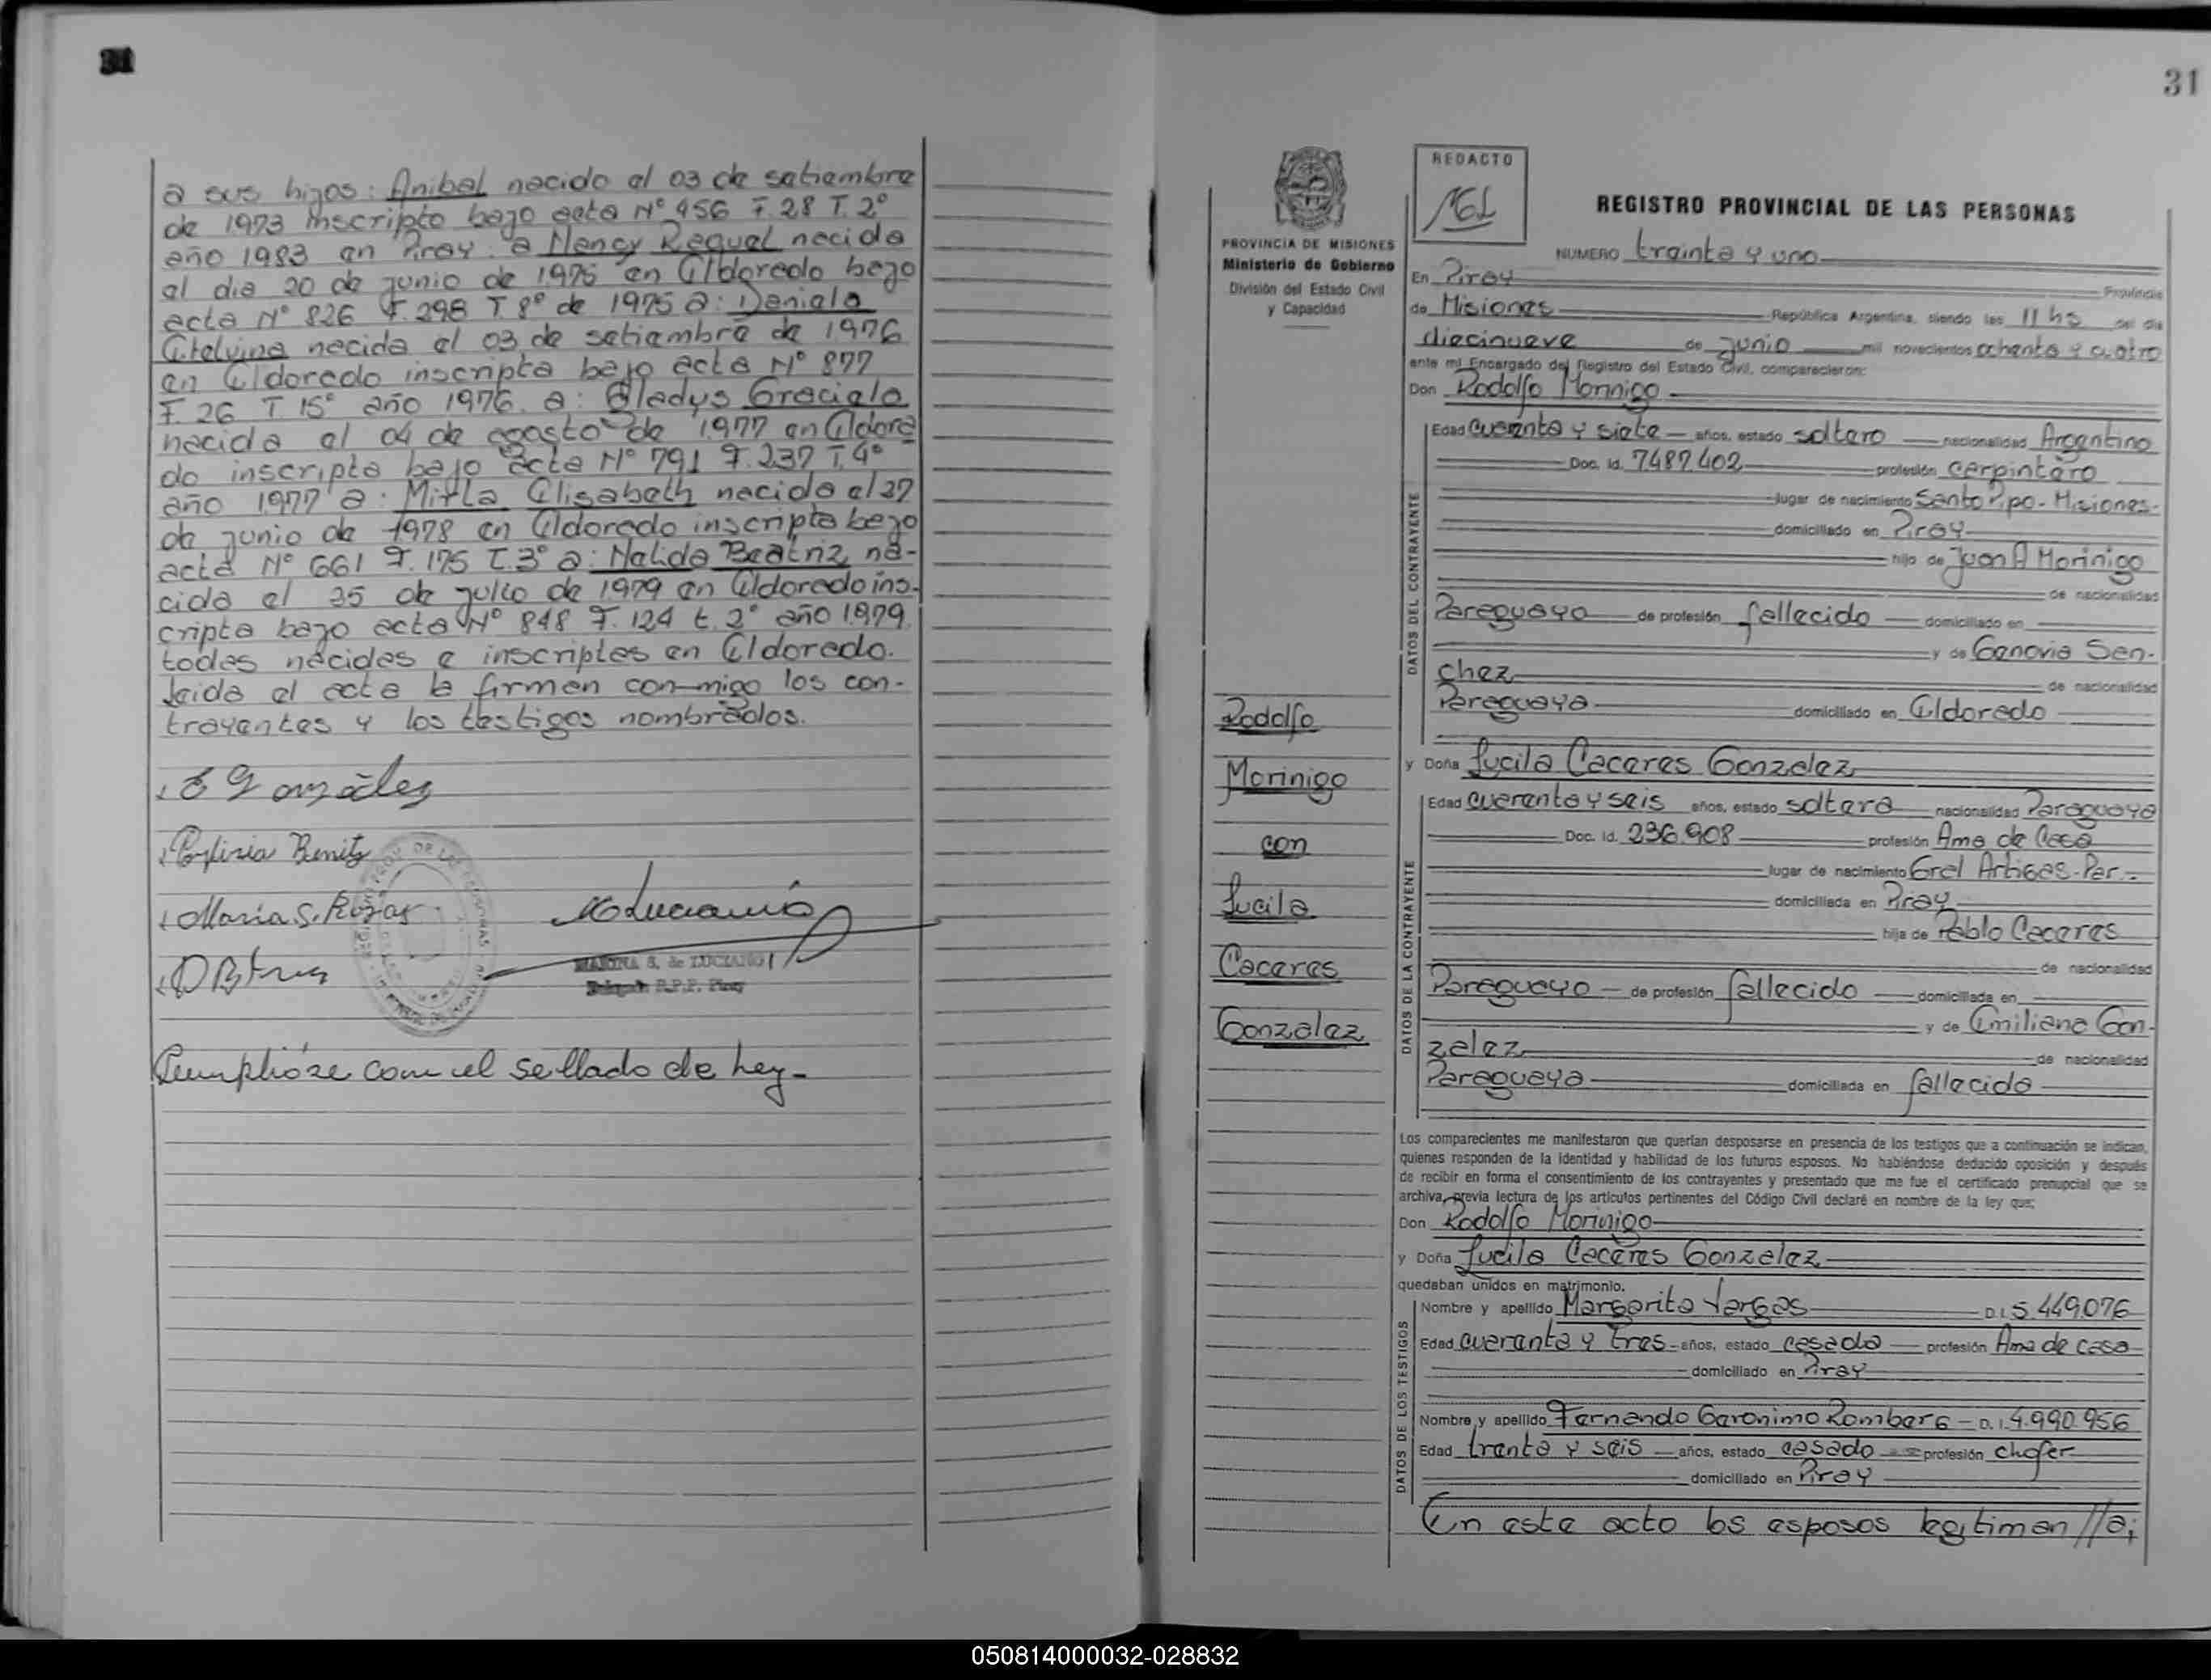 a sus hijos: Anibal nacido el 03 de setiembre
de 1973 inscripto bajo acta Nº 456 F. 28 T. 2º
año 1983 en Piray. a Nancy Raquel nacida
el dia 20 de junio de 1975 en Eldorado bajo
acta Nº 826 F. 298 T 8º de 1975 a: Daniela
Etelvina nacida el 03 de setiembre de 1976
en Eldorado inscripta bajo acta Nº 877
F. 26 T. 15º año 1976. a: Gladys Graciela
nacida el 04 de agosto de 1977 en Eldora
do inscripta bajo acta Nº 791 F. 237 T. 4º
año 1977 a: Mirta Elisabeth nacida el 27
de junio de 1978 en Eldorado inscripta bajo
acta Nº 661 F. 175 T. 3º a: Nalida Beatriz na-
cida el 25 de julio de 1979 en Eldorado ins-
cripta bajo acta Nº 848 F. 124 t. 2º año 1979.
todas nacidas e inscriptas en Eldorado.
Leida el acta la firman conmigo los con-
trayentes y los testigos nombrados.
Gonzáles
Porfiria Benitz
Maria S. Rojas
MARINA S. de LUCIANO
Delegada R.P.P. Piray
Cumplióse con el sellado de ley-
31
REDACTO
161
PROVINCIA DE MISIONES
Ministerio de Gobierno
División del Estado Civil
y Capacidad
REGISTRO PROVINCIAL DE LAS PERSONAS
NUMERO treinta y uno
En Piray Provincia
de Misiones República Argentina, siendo las 11 hs del día
diecinueve de junio mil novecientos ochenta y cuatro
ante mi Encargado del Registro del Estado Civil, comparecieron:
Don Rodolfo Morinigo
DATOS DEL CONTRAYENTE
Edad cuarenta y siete años, estado soltero nacionalidad Argentino
Doc. Id. 7487402 profesión carpintero
lugar de nacimiento Santo Pipo - Misiones-
domiciliado en Piray
hijo de Juan A Morinigo
de nacionalidad
Paraguayo de profesión fallecido domiciliado en
y de Genovia San-
chez de nacionalidad
Paraguaya domiciliado en Eldorado
y Doña Lucila Caceres Gonzalez
DATOS DE LA CONTRAYENTE
Edad cuarenta y seis años, estado soltera nacionalidad Paraguaya
Doc. Id. 236.908 profesión Ama de Casa
lugar de nacimiento Gral Artigas-Par.-
domiciliada en Piray
hija de Pablo Caceres
de nacionalidad
Paraguayo de profesión fallecido domiciliada en
y de Emiliana Gon-
zalez de nacionalidad
Paraguaya domiciliada en fallecida
Rodolfo
Morinigo
con
Lucila
Caceres
Gonzalez
Los comparecientes me manifestaron que querían desposarse en presencia de los testigos que a continuación se indican,
quienes responden de la identidad y habilidad de los futuros esposos. No habiéndose deducido oposición y después
de recibir en forma el consentimiento de los contrayentes y presentado que me fue el certificado prenupcial que se
archiva, previa lectura de los artículos pertinentes del Código Civil declaré en nombre de la ley que;
Don Rodolfo Morinigo
y Doña Lucila Caceres Gonzalez
quedaban unidos en matrimonio.
DATOS DE LOS TESTIGOS
Nombre y apellido Margarita Vargas D.I. 5.449.076
Edad cuaranta y tres años, estado casada profesión Ama de casa
domiciliado en Piray
Nombre y apellido Fernando Geronimo Romberg D.I. 4.990.956
Edad trenta y seis años, estado casado profesión chofer
domiciliado en Piray
En este acto los esposos legitiman //a;
050814000032-028832